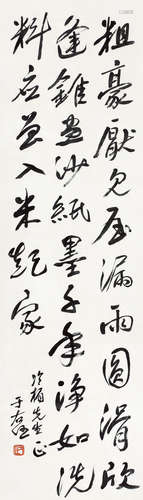 粗豪厭見屋漏雨圓滑欣
逢錐畫沙紙墨千年淨如洗
料應曾入米顛家
冷楓先生正
于右任